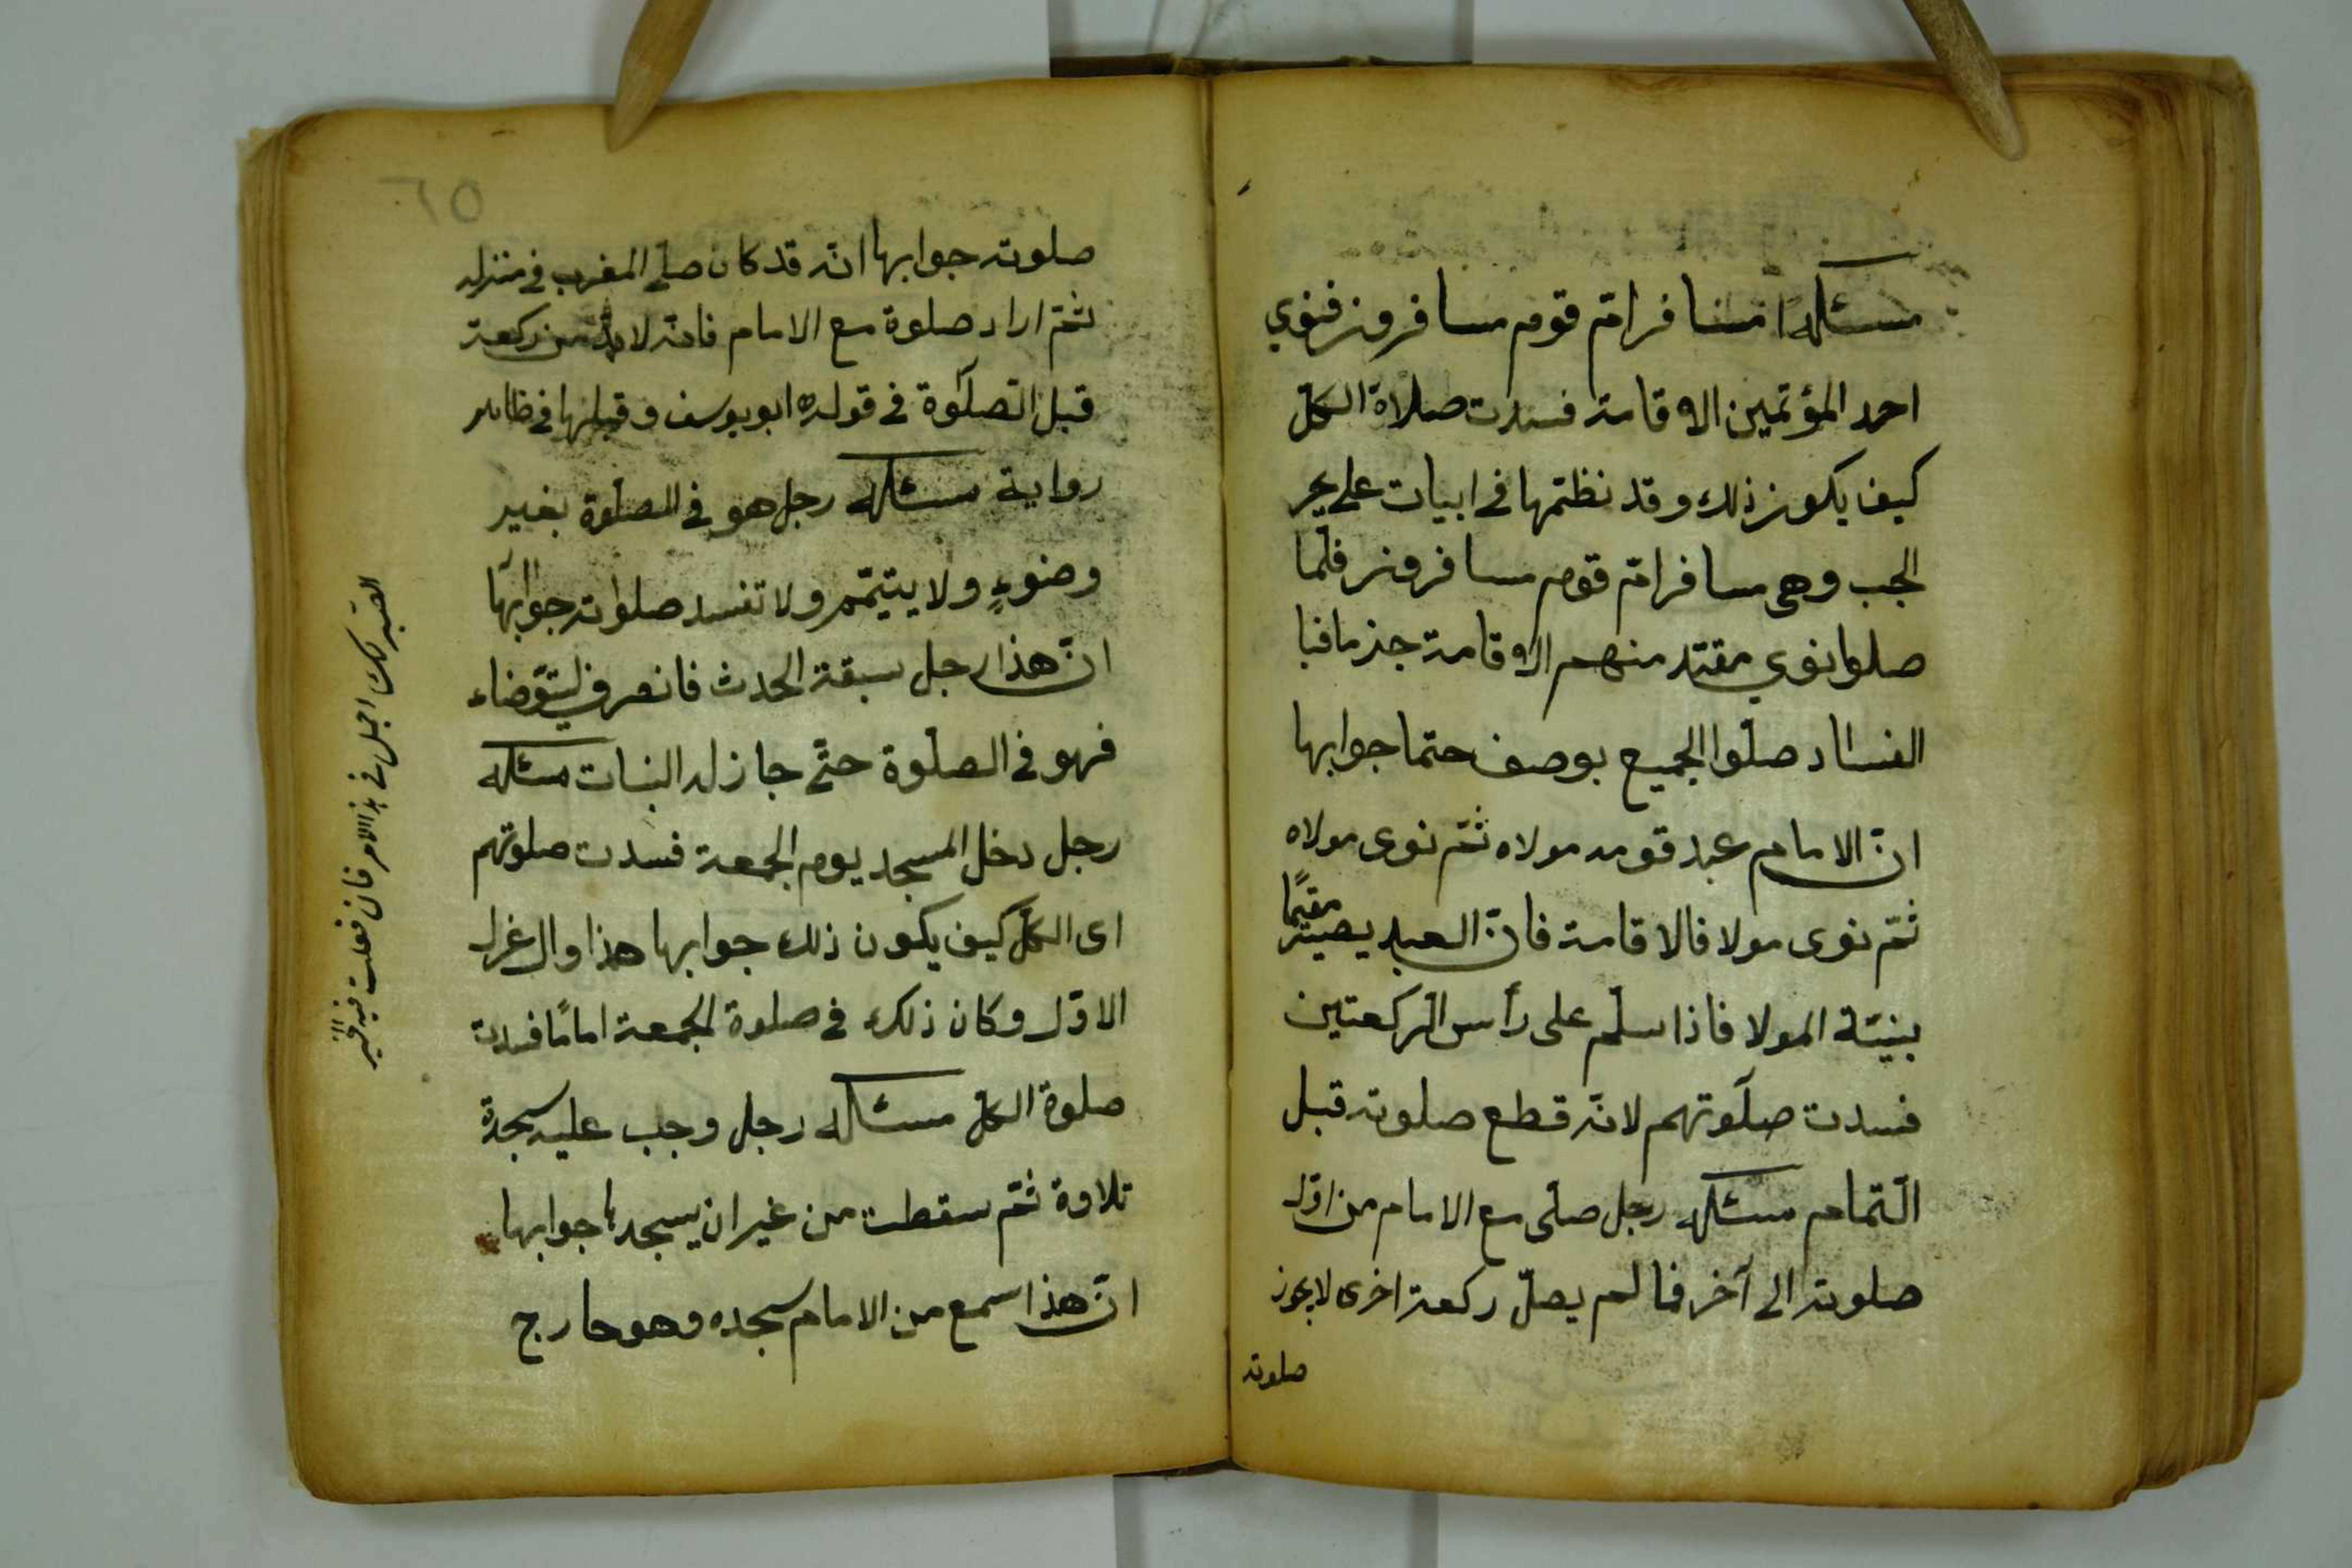 مسئلة مسافر امّ قوم مسافرون فنوي
احد المؤتمين الاقامة فسدت صلاة الكلّ
كيف يكون ذلك وقد نظمتها في ابيات على بحر
الجب وهي مسافر امّ قوم مسافرون فلّما
صلوا نوي مقتد منهم الاقامة جزما فبا
الفساد صلّوا الجميع بوصف حتما جوابها
انّ الامام عبد قومه مولاه ثمّ نوى مولاه
ثمّ نوى مولاه الاقامة فانّ العبد يصير مقيمًا
بنيّة المولا فاذا سلّم على رأس الركعتين
فسدت صلوتهم لانّه قطع صلوته قبل
التّمام مسئلة رجل صلّى مع الامام من اوّل
صلوته الى آخر فما لم يصلّ ركعة اخرى لا يجوز
صلوته
٦٥
صلوته جوابها انّه قد كان صلّى المغرب في منزله
ثمّ اراد صلوة مع الامام فانّه لا بدّ من ركعة
قبل الصلوة في قوله ابو يوسف وقبلها في ظاهر
رواية مسئلة رجل هو في الصلوة بغير
وضوءٍ ولا يتيمّم ولا تفسد صلواته جوابها
انّ هذا رجل سبقة الحدث فانصرف ليتوّضاء
فهو في الصلوة حتّى جاز له البنات مسئلة
رجل دخل المسجد يوم الجمعة فسدت صلوتهم
اى الكلّ كيف يكون ذلك جوابها هذا وال عزل
الاوّل وكان ذلك في صلوة الجمعة امامًا فسدت
صلوة الكلّ مسئلة رجل وجب عليه سجدة
تلاوة ثمّ سقطت من غير ان يسجدها جوابها
انّ هذا سمع من الامام سجده وهو خارج
الصبر لك اجمل في هذا الامر فان فعلت فيه